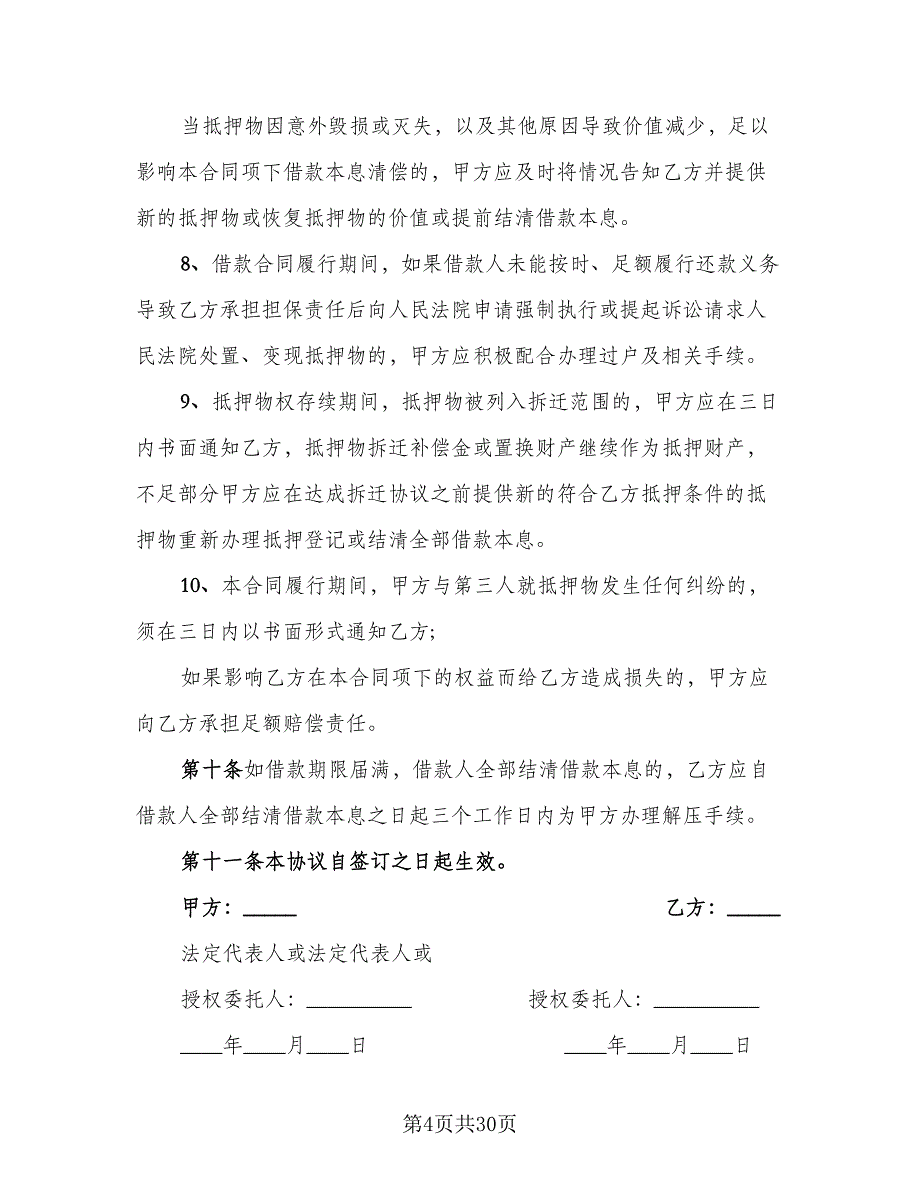 当抵押物因意外毁损或灭失，以及其他原因导致价值减少，足以
影响本合同项下借款本息清偿的，甲方应及时将情况告知乙方并提供
新的抵押物或恢复抵押物的价值或提前结清借款本息。
8、借款合同履行期间，如果借款人未能按时、足额履行还款义务
导致乙方承担担保责任后向人民法院申请强制执行或提起诉讼请求人
民法院处置、变现抵押物的，甲方应积极配合办理过户及相关手续。
9、抵押物权存续期间，抵押物被列入拆迁范围的，甲方应在三日
内书面通知乙方，抵押物拆迁补偿金或置换财产继续作为抵押财产，
不足部分甲方应在达成拆迁协议之前提供新的符合乙方抵押条件的抵
押物重新办理抵押登记或结清全部借款本息。
10、本合同履行期间，甲方与第三人就抵押物发生任何纠纷的，
须在三日内以书面形式通知乙方;
如果影响乙方在本合同项下的权益而给乙方造成损失的，甲方应
向乙方承担足额赔偿责任。
第十条如借款期限届满，借款人全部结清借款本息的，乙方应自
借款人全部结清借款本息之日起三个工作日内为甲方办理解压手续。
第十一条本协议自签订之日起生效。
甲方：_____ 乙方：_____
法定代表人或法定代表人或
授权委托人：__________ 授权委托人：__________
____年____月____日 ____年____月____日
第4页共30页